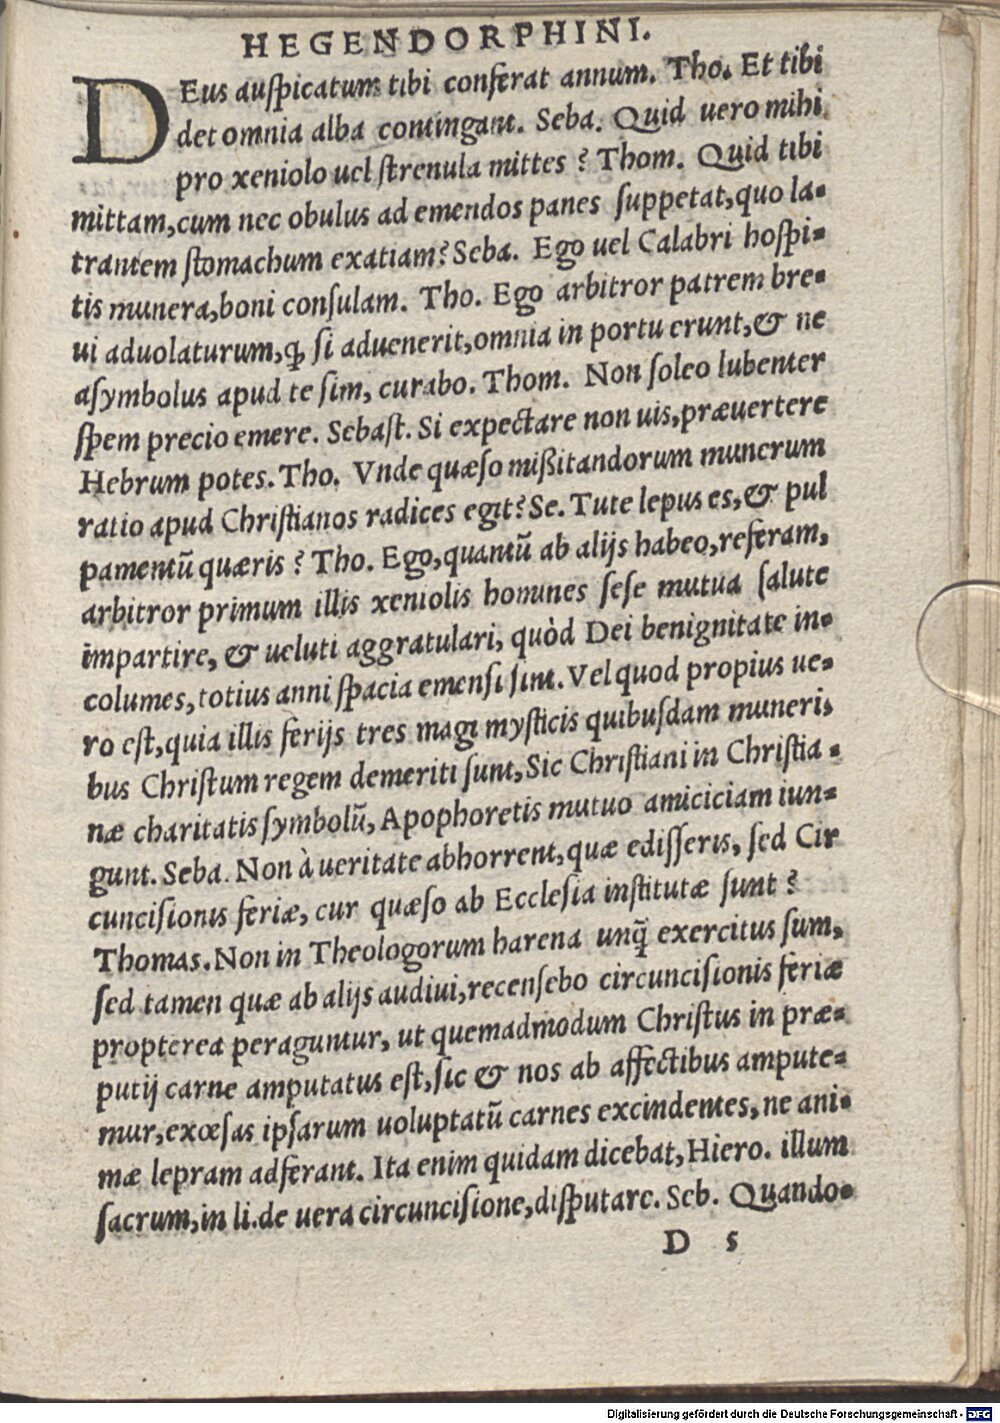 HEGENDORPHINI.
DEus auſpicatum tibi conferat annum. Tho. Et tibi
det omnia alba contingant. Seba. Quid uero mihi
pro xeniolo uel ſtrenula mittes ? Thom. Quid tibi
mittam, cum nec obulus ad emendos panes ſuppetat, quo la-
trantem ſtomachum exatiam? Seba. Ego uel Calabri hoſpi-
tis munera, boni conſulam. Tho. Ego arbitror patrem bre-
ui aduolaturum, ꝙ ſi aduenerit, omnia in portu erunt, & ne
aſymbolus apud te ſim, curabo. Thom. Non ſoleo lubenter
ſpem precio emere. Sebaſt. Si expectare non uis, præuertere
Hebrum potes. Tho. Vnde quæſo mißitandorum munerum
ratio apud Chriſtianos radices egit? Se. Tute lepus es, & pul
pamentũ quæris ? Tho. Ego, quantũ ab alijs habeo, referam,
arbitror primum illis xeniolis homines ſeſe mutua ſalute
impartire, & ueluti aggratulari, quòd Dei benignitate in-
columes, totius anni ſpacia emenſi ſint. Vel quod propius ue-
ro eſt, quia illis ferijs tres magi myſticis quibuſdam muneri-
bus Chriſtum regem demeriti ſunt, Sic Chriſtiani in Chriſtia-
næ charitatis ſymbolũ, Apophoretis mutuo amiciciam iun-
gunt. Seba. Non à ueritate abhorrent, quæ ediſſeris, ſed Cir
cunciſionis feriæ, cur quæſo ab Eccleſia inſtitutæ ſunt ?
Thomas. Non in Theologorum harena unq̃ exercitus ſum,
ſed tamen quæ ab alijs audiui, recenſebo circunciſionis feriæ
propterea peraguntur, ut quemadmodum Chriſtus in præ-
putij carne amputatus eſt, ſic & nos ab affectibus ampute-
mur, exœſas ipſarum uoluptatũ carnes excindentes, ne ani-
mæ lepram adferant. Ita enim quidam dicebat, Hiero. illum
ſacrum, in li. de uera circunciſione, diſputare. Seb. Quando-
D 5
Digitalisierung gefördert durch die Deutsche Forschungsgemeinschaft - DFG